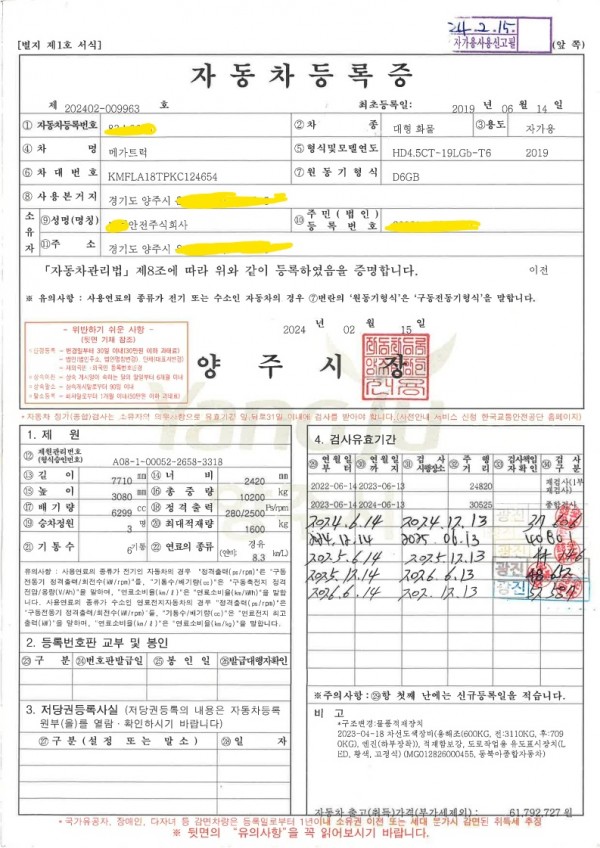 24. 2. 15.
자가용사용신고필
[별지 제1호 서식]
(앞 쪽)
자동차등록증
제 202402-009963 호
최초등록일: 2019 년 06 월 14 일
① 자동차등록번호
② 차 종 대형 화물
③용도 자가용
④ 차 명 메가트럭
⑤ 형식및모델연도 HD4.5CT-19LGb-T6 2019
⑥ 차 대 번 호 KMFLA18TPKC124654
⑦ 원 동 기 형 식 D6GB
⑧ 사 용 본 거 지 경기도 양주시
소유자
⑨성명(명칭) 안전주식회사
⑩ 주 민 ( 법 인 ) 등 록 번 호
⑪주 소 경기도 양주시
「자동차관리법」제8조에 따라 위와 같이 등록하였음을 증명합니다.
이전
※ 유의사항 : 사용연료의 종류가 전기 또는 수소인 자동차의 경우 ⑦번란의 '원동기형식'은 '구동전동기형식'을 말합니다.
2024 년 02 월 15 일
- 위반하기 쉬운 사항 -
(뒷면 기재 참조)
양 주 시 장
*자동차 정기(종합)검사는 소유자의 의무사항으로 유효기간 만료일 전.뒤로31일 이내에 검사를 받아야 합니다.(사전안내 서비스 신청 한국교통안전공단 홈페이지)
1. 제 원
⑫ 제원관리번호
(형식승인번호)
A08-1-00052-2658-3318
⑬ 길 이 7710 mm
⑭ 너 비 2420 mm
⑮ 높 이 3080 mm
⑯ 총 중 량 10200 kg
⑰ 배 기 량 6299 cc
⑱ 정 격 출 력 280/2500 Ps/rpm
⑲ 승차정원 3 명
⑳ 최대적재량 1600 kg
㉑ 기 통 수 6 기통
㉒ 연료의 종류 경유
(연비) 8.3 km/L)
유의사항 : 사용연료의 종류가 전기인 자동차의 경우 "정격출력(ps/rpm)"은 "구동
전동기 정격출력/최전수(kW/rpm)"을, "기통수/배기량(cc)"은 "구동축전지 정격
전압/용량(V/Ah)"을 말하며, "연료소비율(km/ℓ)"은 "연료소비율(km/kWh)"을 말합
니다. 사용연료의 종류가 수소인 연료전지자동차의 경우 "정격출력(ps/rpm)"은
"구동전동기 정격출력/회전수(kW/rpm)"을, "기통수/배기량(cc)"은 "연료전지 최고
출력(kW)"을 말하며, "연료소비율(km/ℓ)"은 "연료소비율(km/kg)"을 말합니다.
2. 등록번호판 교부 및 봉인
㉓ 구 분
㉔번호판발급일
㉕ 봉 인 일
㉖발급대행자확인
3. 저당권등록사실 (저당권등록의 내용은 자동차등록
원부(을)를 열람ㆍ확인하시기 바랍니다)
㉗ 구 분 ( 설 정 또 는 말 소 )
㉘ 일 자
4. 검사유효기간
㉙ 연 월 일 부 터
㉚ 연 월 일 까 지
㉛ 검 사 시행장소
㉜ 주 행 거 리
㉝ 검사책임자확인
㉞ 검 사 구 분
2022-06-14 2023-06-13 24820 재검사(1부
재검사)
2023-06-14 2024-06-13 30525 종합검사
2024.6.14 2024.12.13
2024.12.14 2025.06.13
2025.6.14 2025.12.13
2025.12.14 2026.6.13
2026.6.14
광진
광진
광진
※주의사항:㉙항 첫째 난에는 신규등록일을 적습니다.
비 고
*구조변경:물품적재장치
2023-04-18 차선도색장비(용해조(600KG, 전:3110KG, 후:709
0KG), 엔진(하부장착)), 적재함보강, 도로작업용 유도표시장치(L
ED, 황색, 고정식) (MG012826000455, 동북아종합자동차)
자동차 출고(취득)가격(부가세제외): 61,792,727 원
*국가유공자, 장애인, 다자녀 등 감면차량은 등록일로부터 1년이내 소유권 이전 또는 세대 분가시 감면된 취득세 추징
※ 뒷면의 "유의사항"을 꼭 읽어보시기 바랍니다.